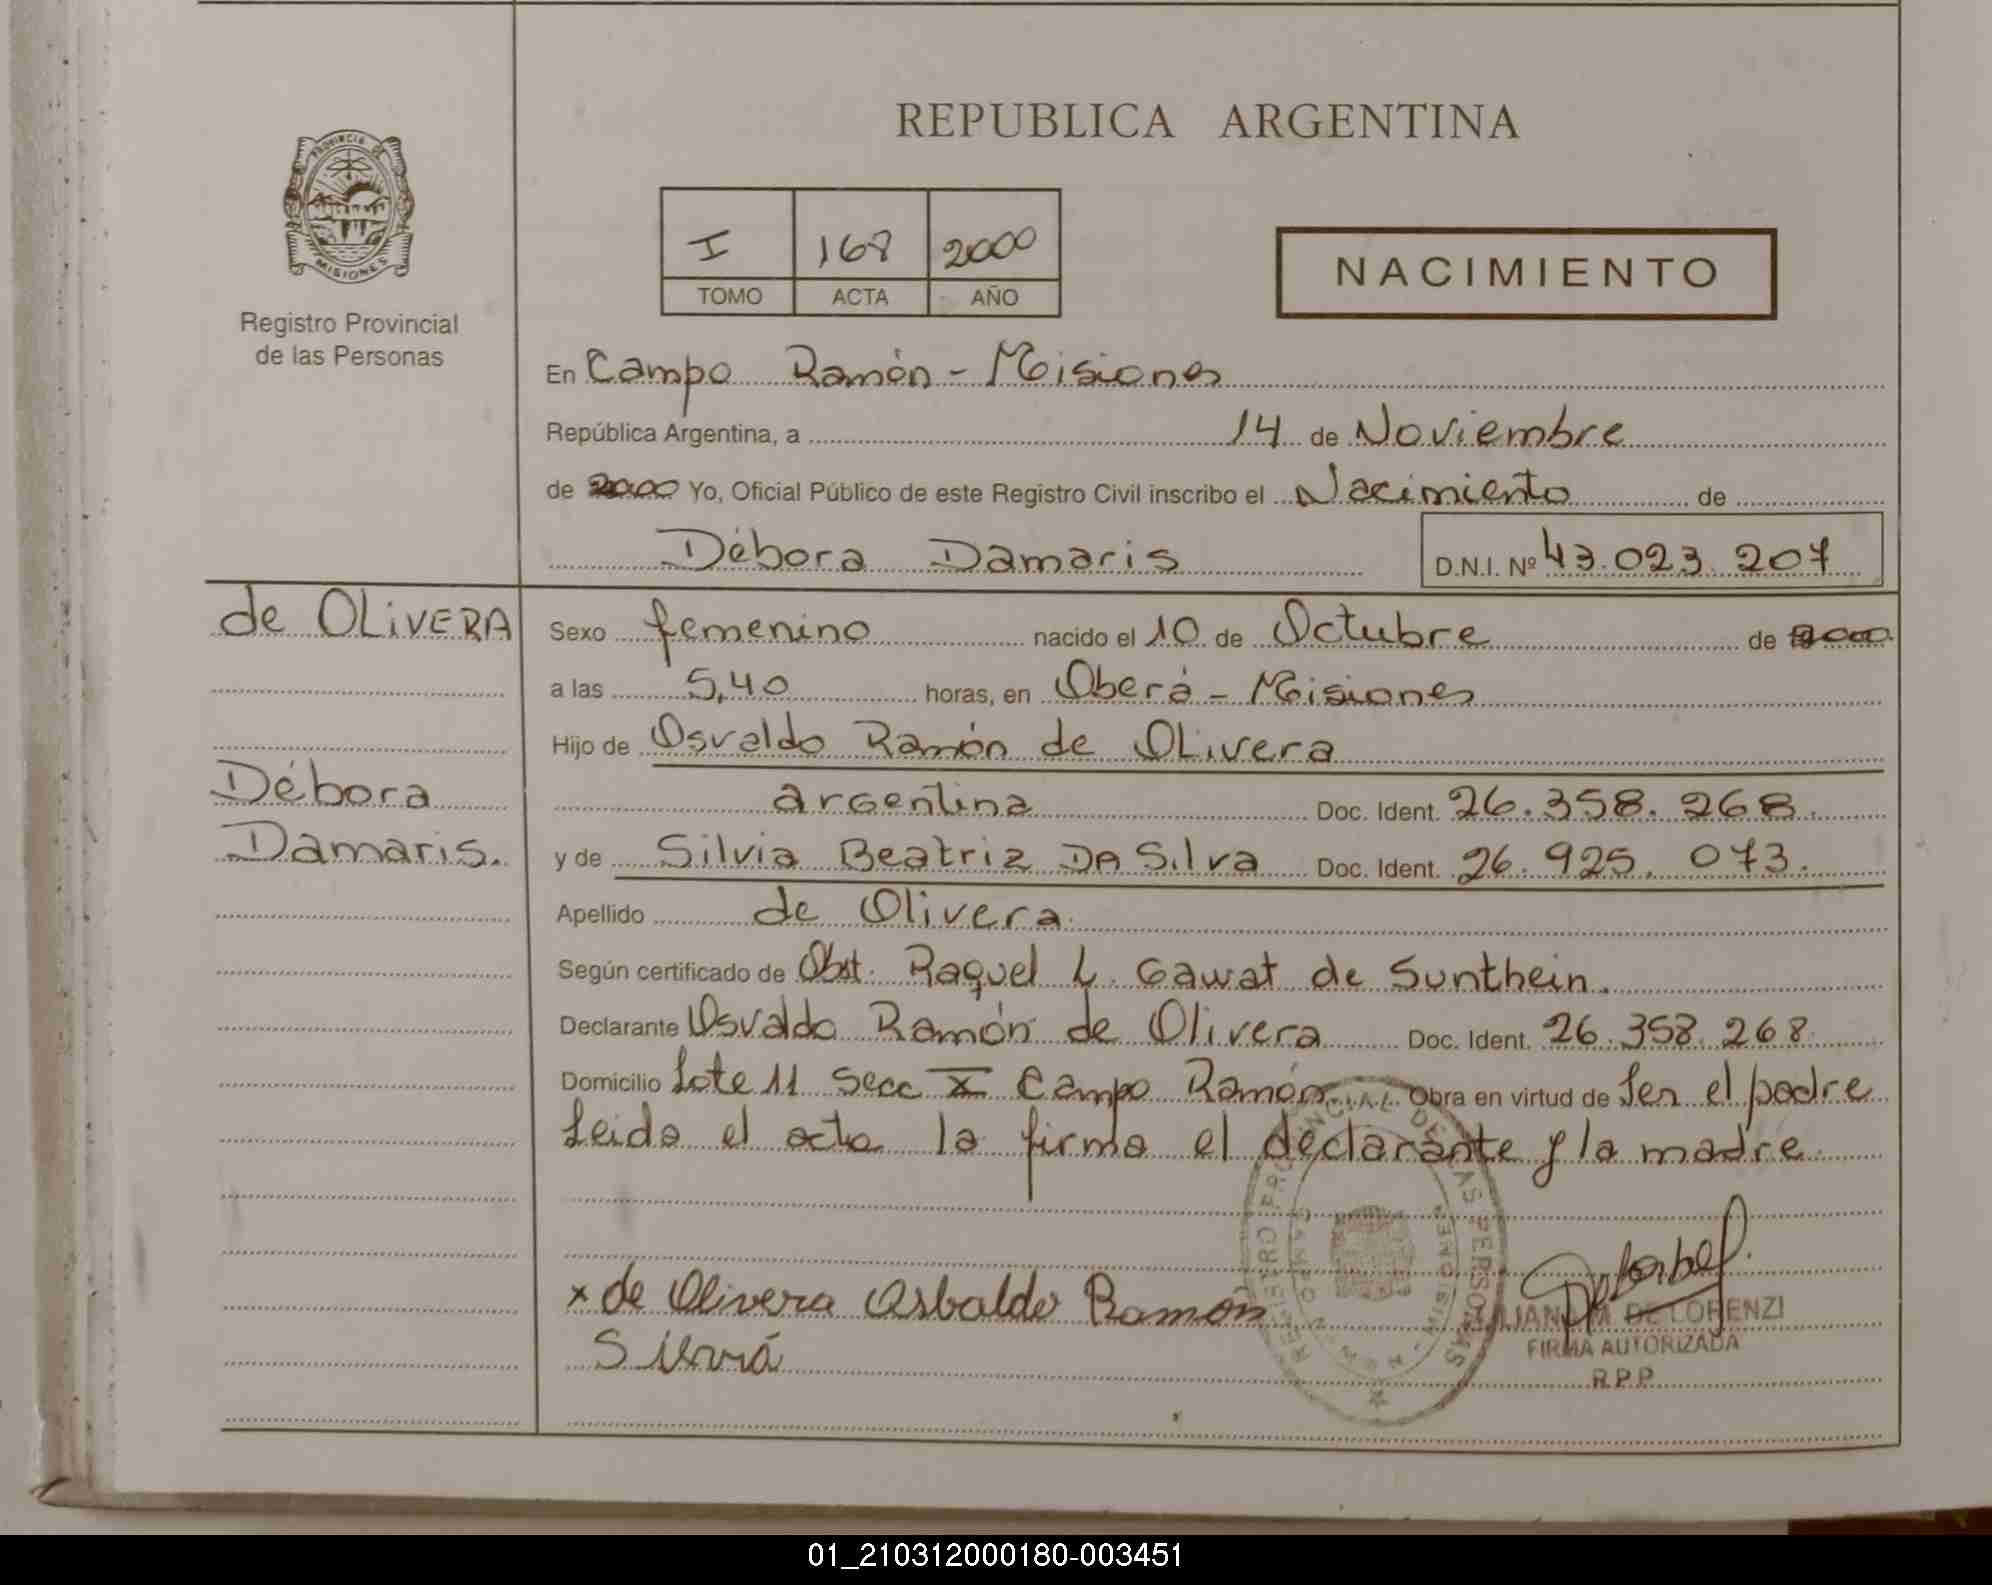 REPUBLICA ARGENTINA
PROVINCIA DE
MISIONES
Registro Provincial
de las Personas
I 168 2000
TOMO ACTA AÑO
NACIMIENTO
En Campo Ramón - Misiones
República Argentina, a 14 de Noviembre
de 2000 Yo, Oficial Público de este Registro Civil inscribo el Nacimiento de
Débora Damaris D.N.I. Nº 43.023.207
de OLIVERA
Débora
Damaris.
Sexo femenino nacido el 10 de Octubre de 2000
a las 5,40 horas, en Oberá - Misiones
Hijo de Osvaldo Ramón de OLivera
argentina Doc. Ident. 26.358.268.
y de Silvia Beatriz DA Silva Doc. Ident. 26.925.073.
Apellido de Olivera.
Según certificado de Obst. Raquel L. Gawat de Sunthein.
Declarante Osvaldo Ramón de Olivera Doc. Ident. 26.358.268
Domicilio Lote 11 Secc X Campo Ramón Obra en virtud de Ser el padre
Leida el acta la firma el declarante y la madre.
REGISTRO PROVINCIAL DE LAS PERSONAS
x de Olivera Osbaldo Ramón
DE LORENZI
FIRMA AUTORIZADA
R.P.P.
01_210312000180-003451